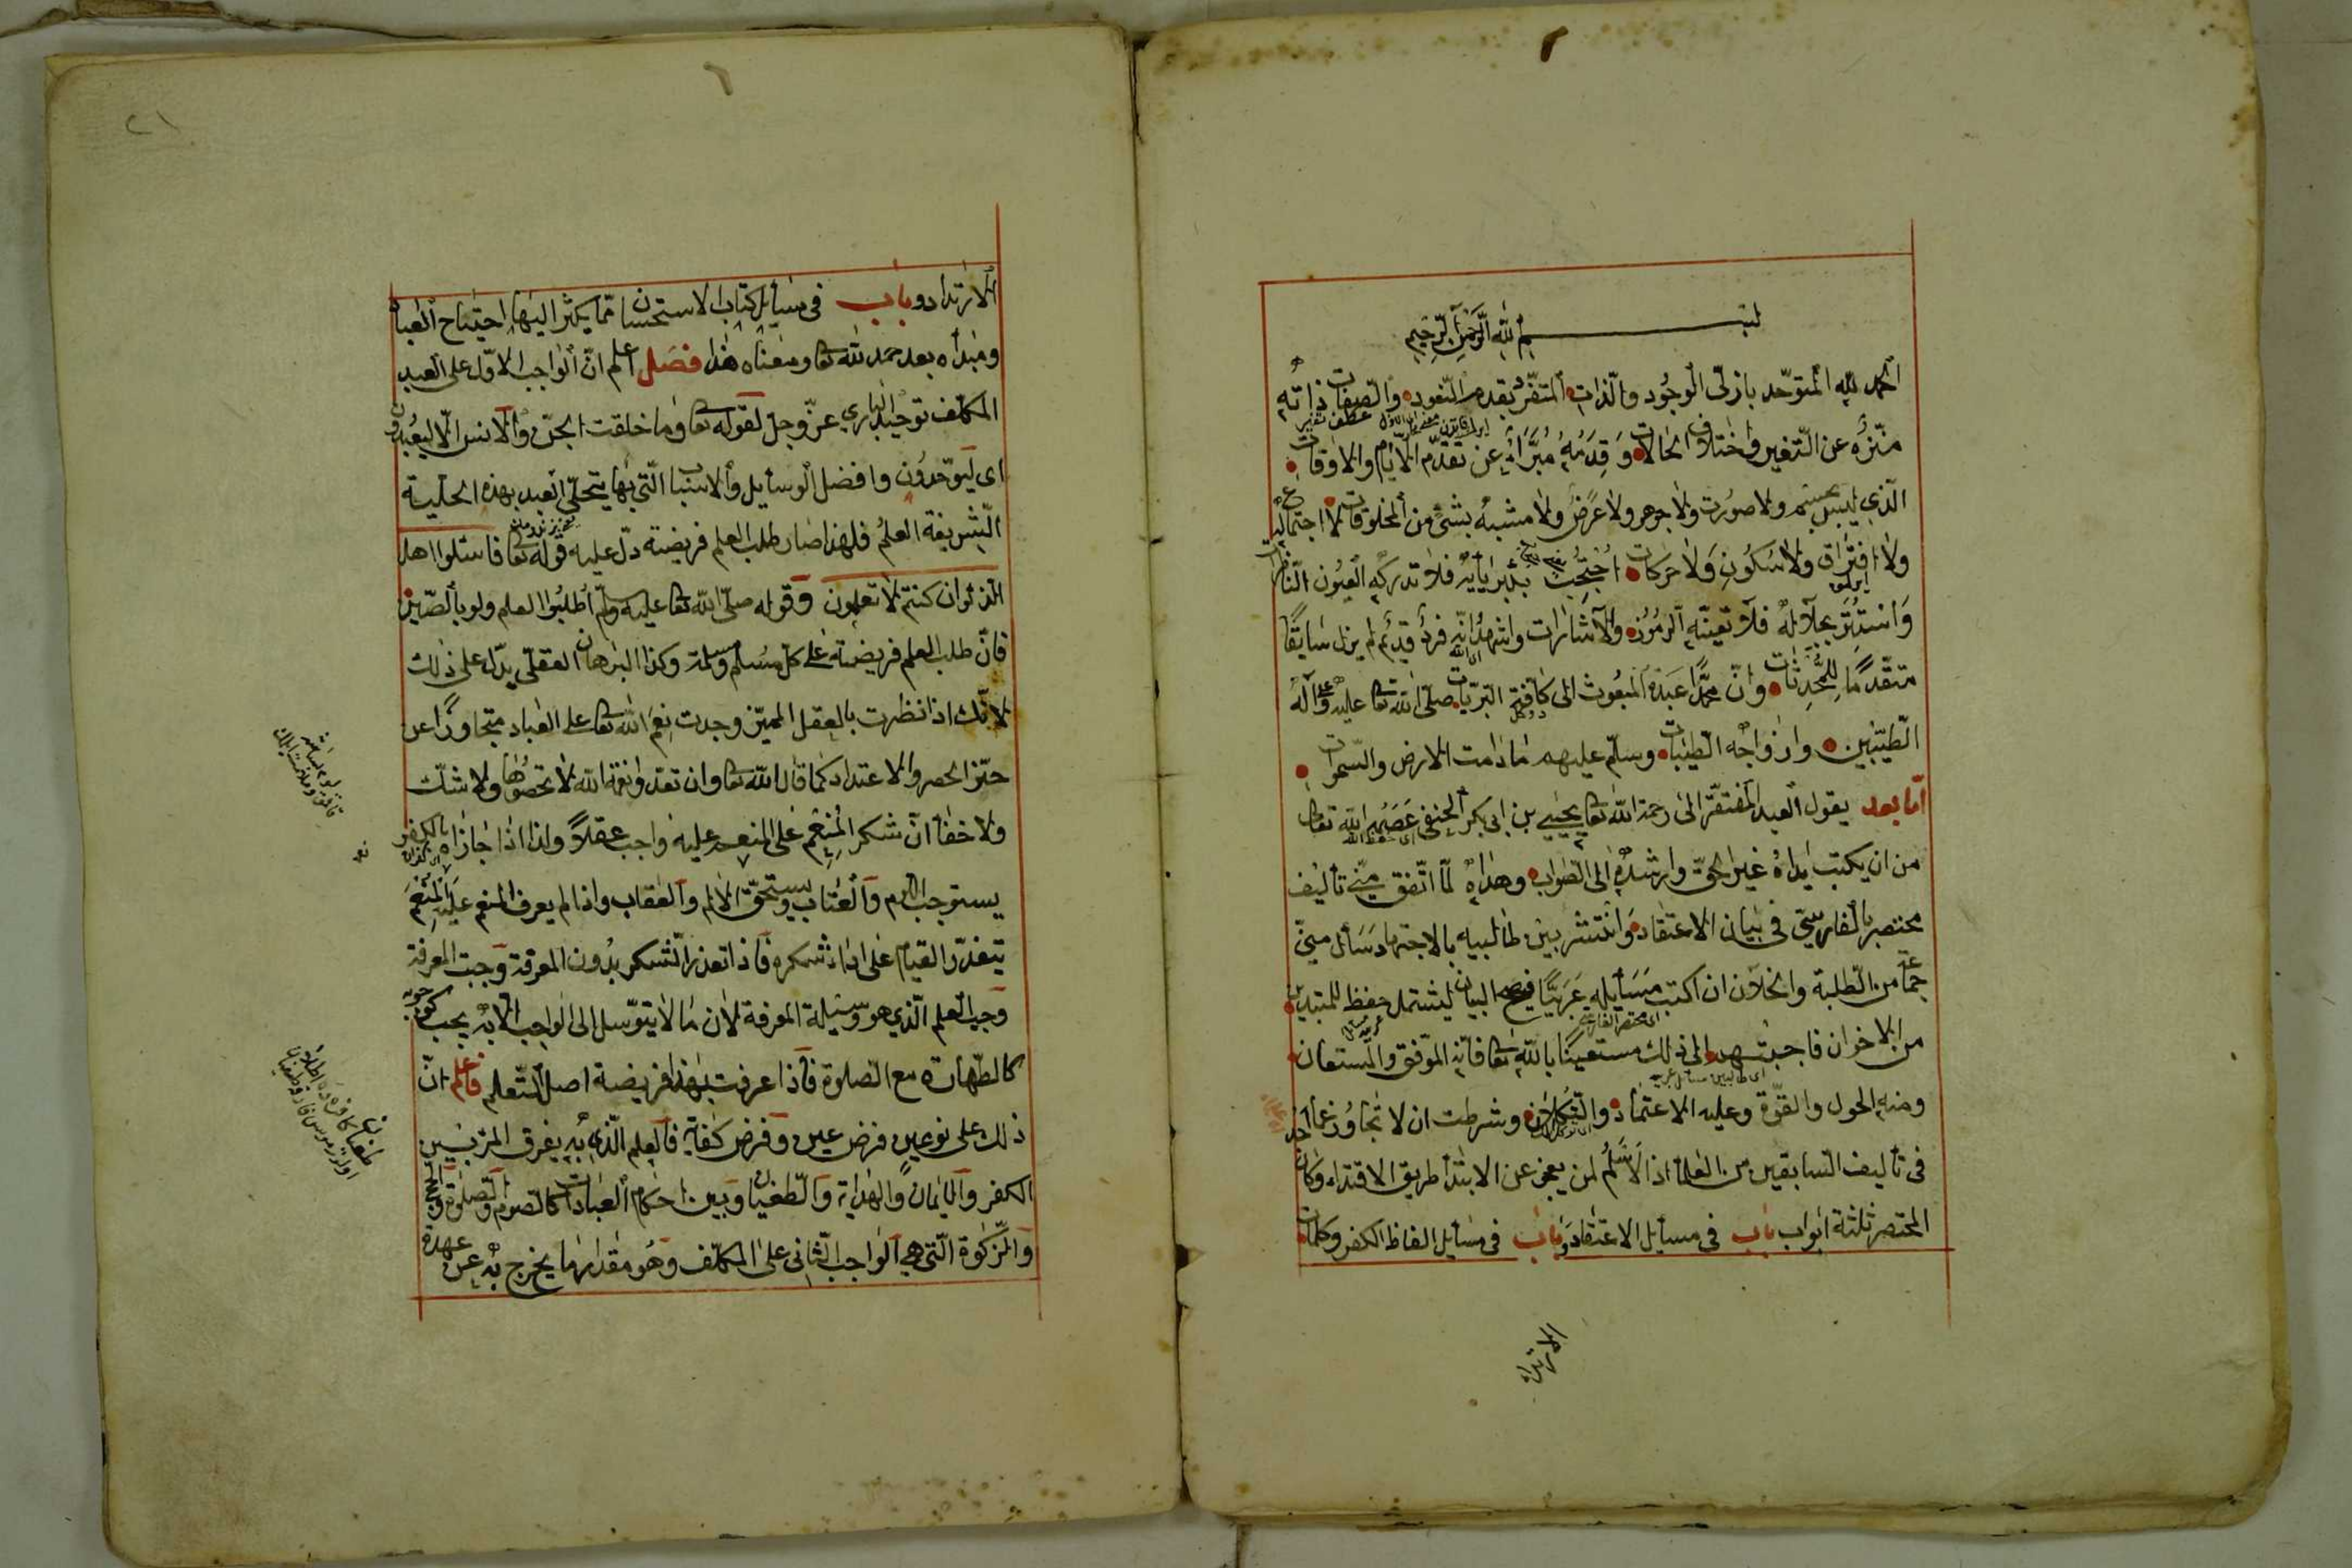 بسم الله الرحمن الرحيم
الحمد لله المتوحد بازلى الوجود والذات المتفرد بقدم النعوت والصفات ذاته
منزه عن التغير واختلاف الحالات وقدمه مبرأة عن تقدم الايام والاوقات
الذي ليس بجسم ولا صورت ولا جوهر ولا عرض ولا مشبه بشئ من المخلوقات لا اجتماع
ولا افتراق ولا سكون ولا حركات احتجب بكبريائيه فلا تدركه العيون الناظرات
واستتر بجلاله فلا تعينه الرموز والاشارات واشهد انه فرد قديم لم يزل سابقا
متقدما للمحدثات وان محمدا عبده المبعوث الى كافة البريات صلى الله تعا عليه وعلى آله
الطيبين وازواجه الطيبات وسلم عليهم ما دامت الارض والسموات
اما بعد يقول العبد المفتقر الى رحمة الله تعا يحيى بن ابى بكر الحنفى عصمه الله تعا
من ان يكتب يداه غير الحق وارشده الى الصواب وهداه لما اتفق منى تأليف
مختصر بالفارسى فى بيان الاعتقاد وانتشر بين طالبيه بالاجتهاد سأل منى
جماعة من الطلبة والخلان ان اكتب مسائله عربيا فصيح البيان ليشتمل حفظ للمبتدين
من الاخوان فاجبتهم الى ذلك مستعينا بالله تعا فانه الموفق والمستعان
ومنه الحول والقوة وعليه الاعتماد والتكلان وشرطت ان لا تجاوز عما اجد
فى تأليف السابقين من العلماء اذ الاسلم لمن يعجز عن الابتداء طريق الاقتداء وكان
المختصر ثلثة ابواب باب فى مسايل الاعتقاد وباب فى مسايل الفاظ الكفر وكلمات
الارتداد
٢١
الارتداد وباب فى مسايل كتاب الاستحسان مما يكثر اليها احتياج العباد
ومبدأه بعد حمد لله تعا ومعناه هذا فصل اعلم ان الواجب الاول على العبد
المكلف توحيد البارى عز وجل لقوله تعا وما خلقت الجن والانس الا ليعبدون
اى ليوحدون وافضل الوسايل والاسباب التى بها يتحلى العبد بهذه الحلية
الشريفة العلم فلهذا صار طلب العلم فريضة دل عليه قوله تعا فاسئلوا اهل
الذكر ان كنتم لا تعلمون وقوله صلى الله تعا عليه وسلم اطلبوا العلم ولو بالصين
فان طلب العلم فريضة على كل مسلم ومسلمة وكذا البرهان العقلى يدل على ذلك
لانك اذا نظرت بالعقل المميز وجدت نعم الله تعا على العباد متجاوزا عن
حيز الحصر والاعتداد كما قال الله تعا وان تعدوا نعمة الله لا تحصوها ولا شك
ولا خفاء ان شكر المنعم على المنعم عليه واجب عقلا ولذا اذا جازاه بالكفر
يستوجب الذم والعتاب ويستحق الالم والعقاب واذا لم يعرف المنعم عليه المنعم
يتعذر القيام على اداء شكره فاذا تعذر الشكر بدون المعرفة وجبت المعرفة
وجب العلم الذي هو وسيلة المعرفة لان ما لا يتوسل الى الواجب الا به يجب كوجوبه
كالطهارة مع الصلوة فاذا عرفت بهذا فريضة اصل التعلم فاعلم ان
ذلك على نوعين فرض عين وفرض كفاية فالعلم الذى به يفرق المرء بين
الكفر والايمان والهداية والطغيان وبين احكام العبادات كالصوم والصلوة والحج
والزكوة التى هى الواجب الثانى على المكلف وهو مقدار ما يخرج به عن عهدة